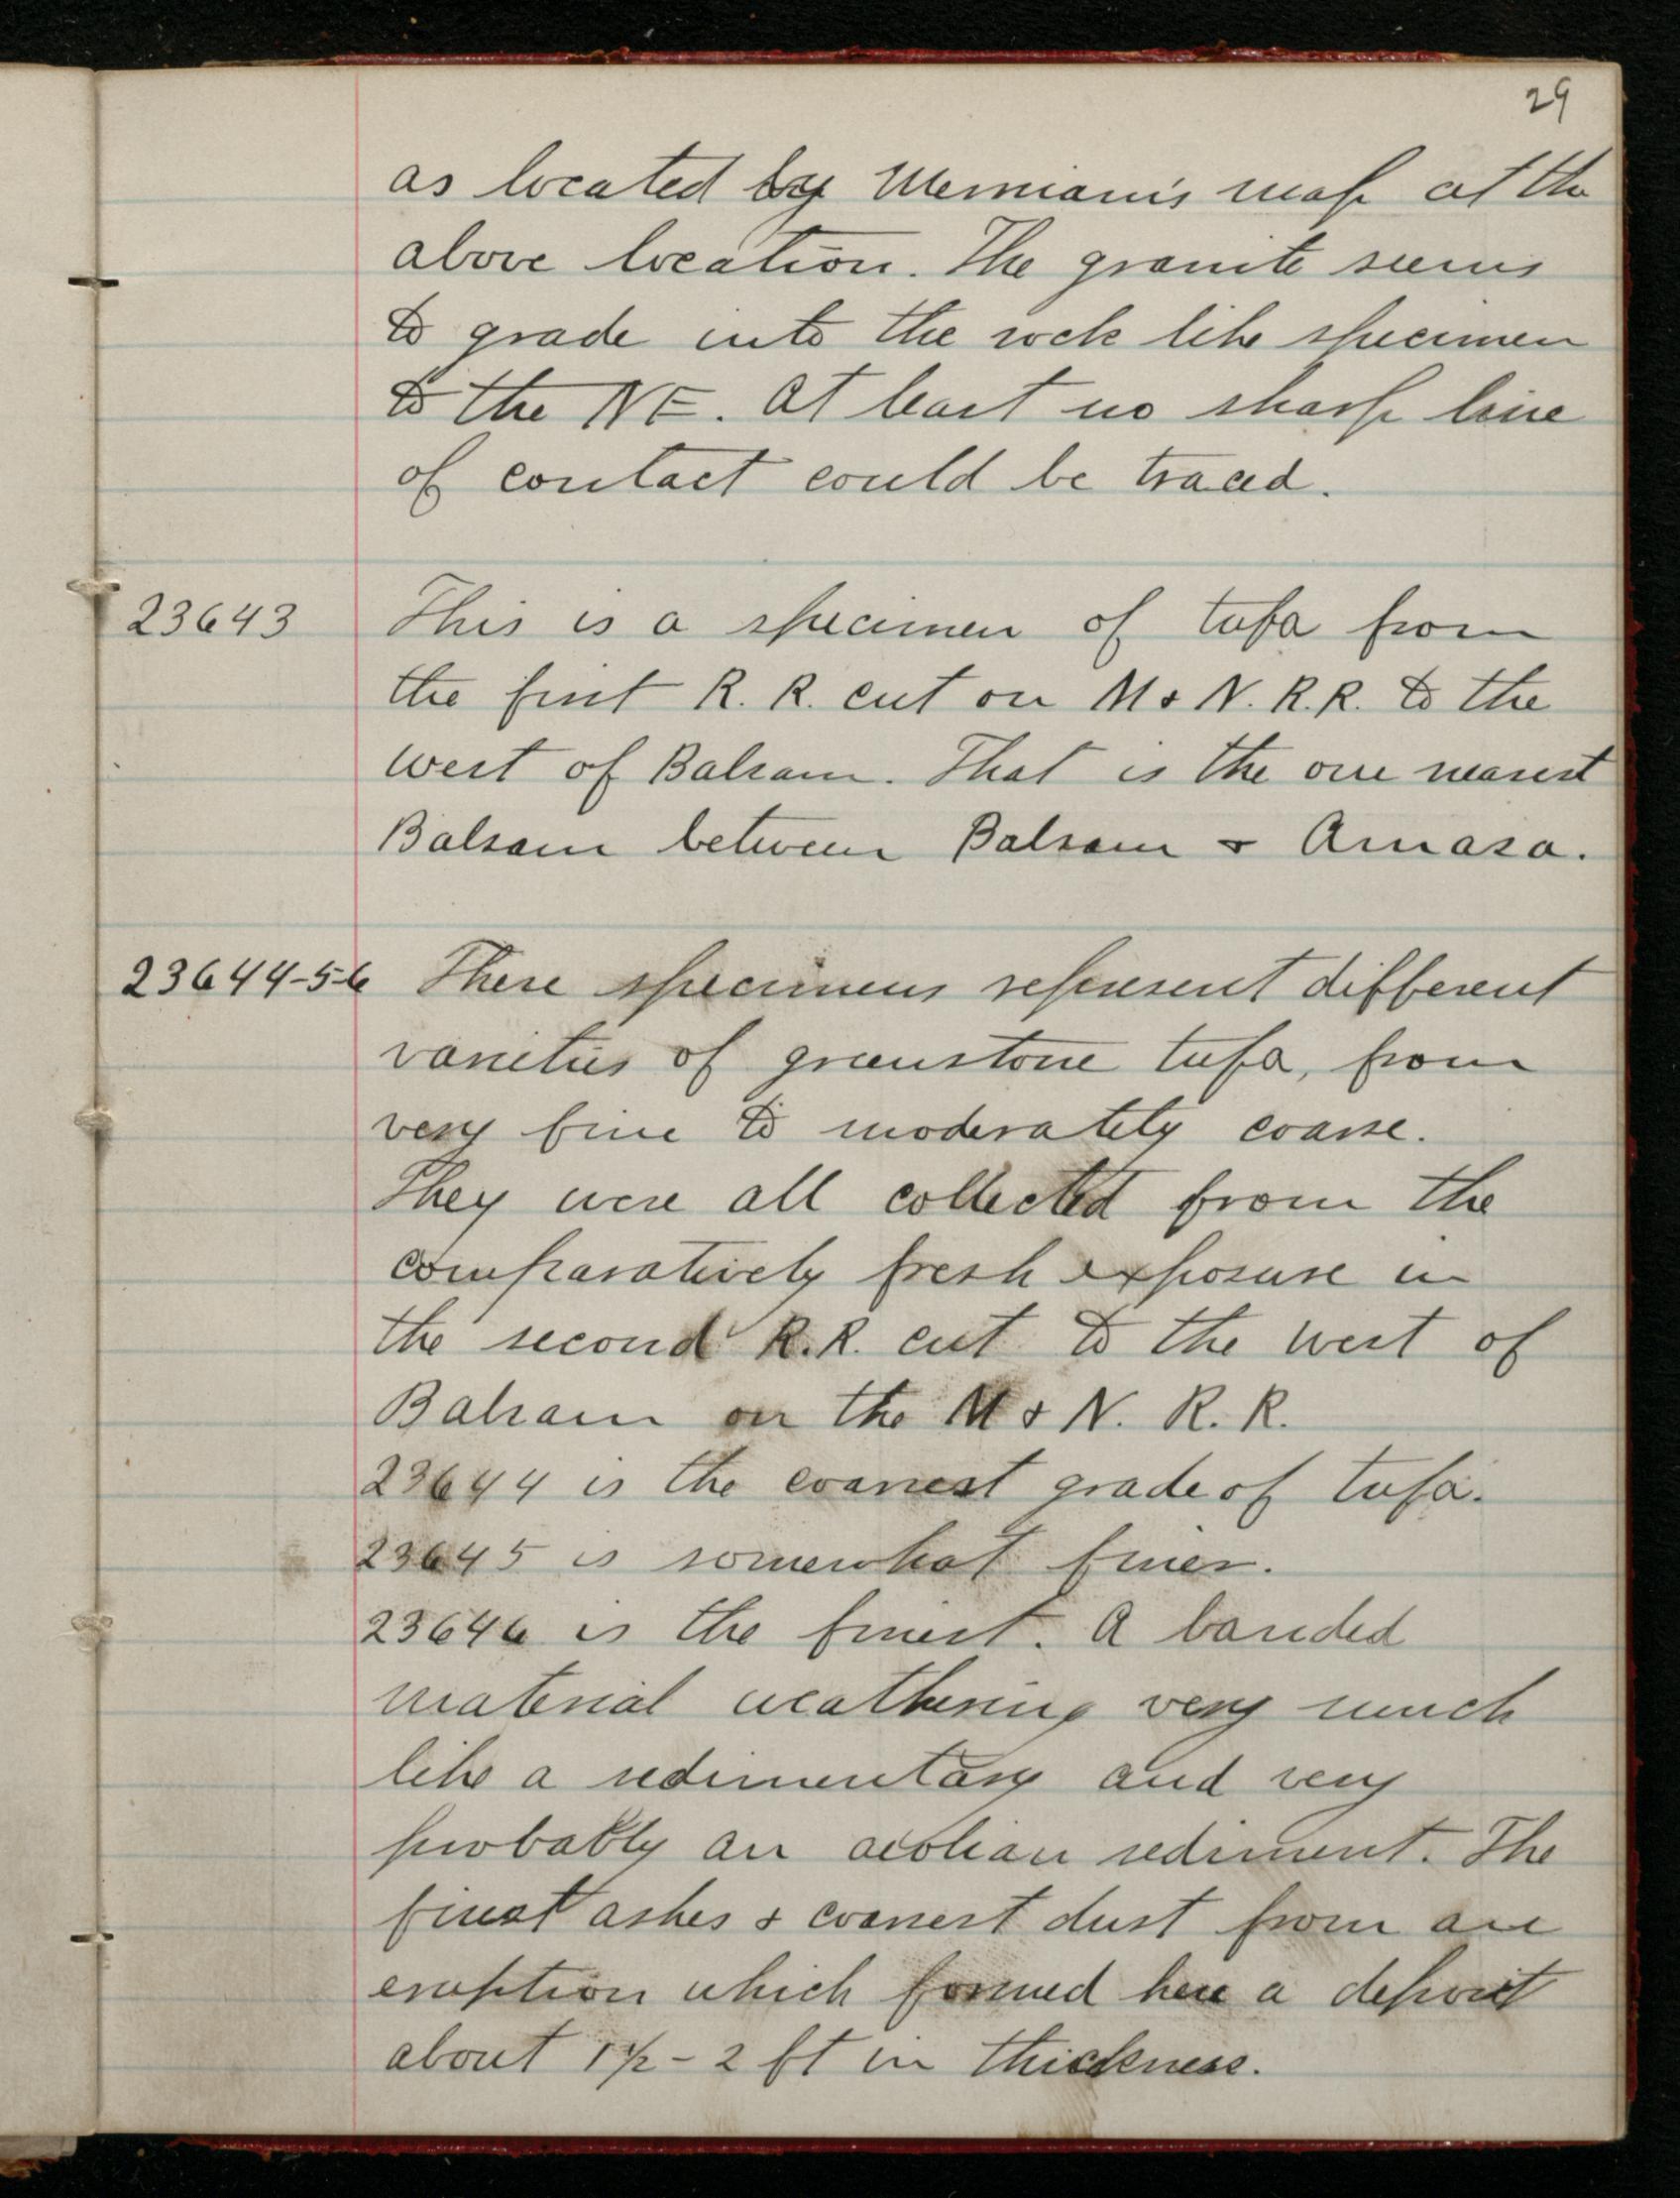 29
as located by Merriam's map at the
above location. The granite seems
to grade into the rock like specimen
to the NE. At least no sharp line
of contact could be traced.
23643 This is a specimen of tufa from
the first R. R. cut on M & N. R.R. to the
west of Balsam. That is the one nearest
Balsam between Balsam & Amasa.
23644-5-6 These specimens represent different
varieties of greenstone tufa, from
very fine to moderately coarse.
They were all collected from the
comparatively fresh exposure in
the second R.R. cut to the west of
Balsam on the M & N. R. R.
23644 is the coarsest grade of tufa.
23645 is somewhat finer.
23646 is the finest. A banded
material weathering very much
like a sedimentary and very
probably an aeolian sediment. The
finest ashes & coarsest dust from an
eruption which formed here a deposit
about 1½ - 2 ft in thickness.